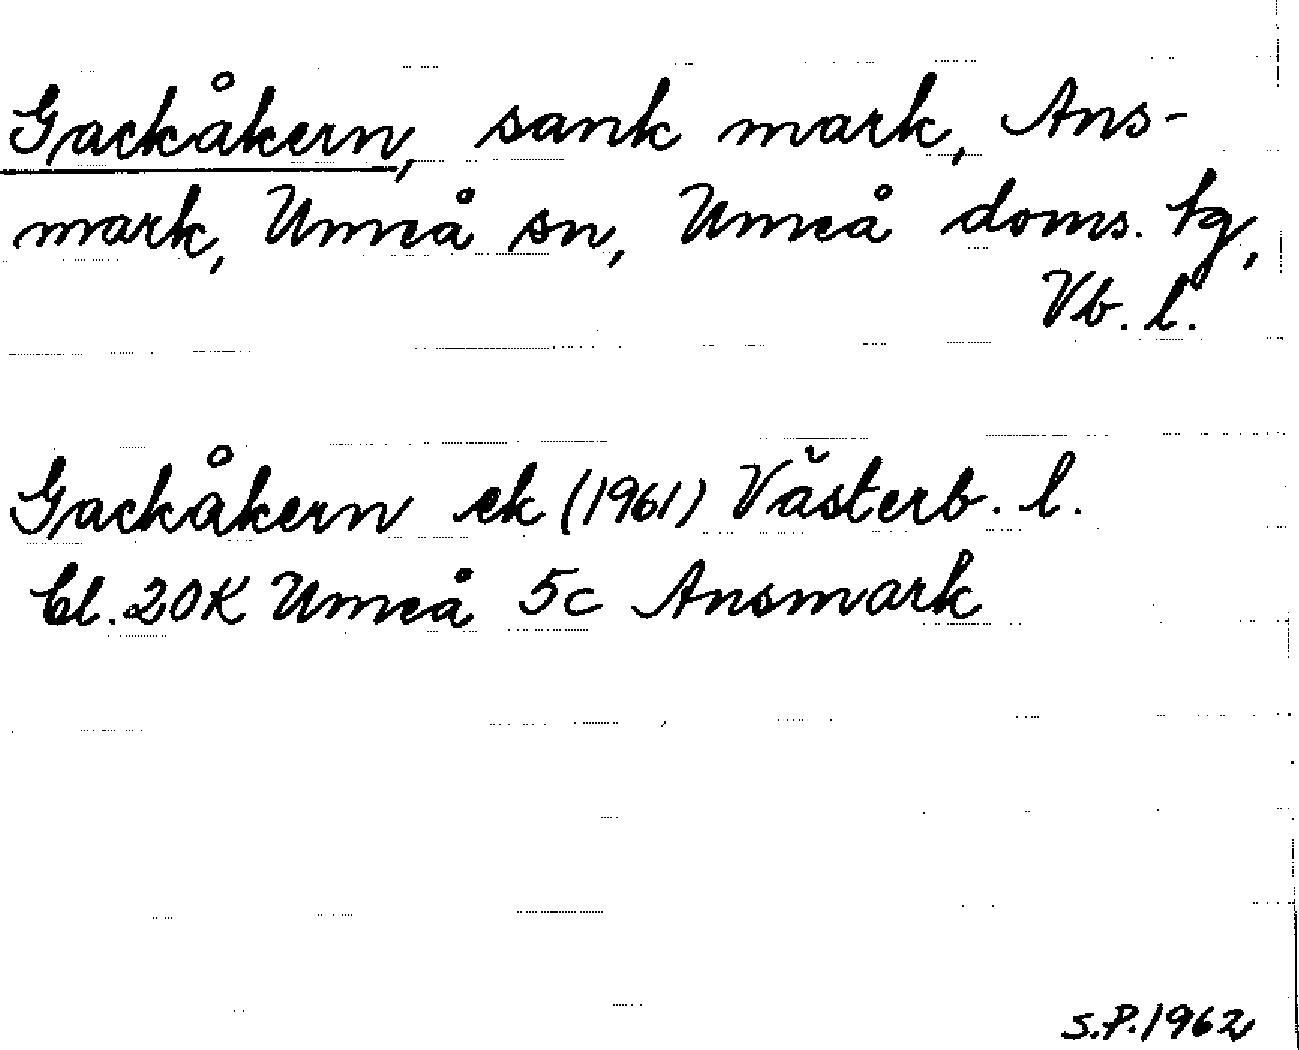 Gackåkern, sank mark, Ans-
mark, Umeå sn, Umeå doms. tg,
Vb. l.
Gackåkern ek (1961) Västerb. l.
Bl. 20K Umeå 5c Ansmark
S.P. 1962